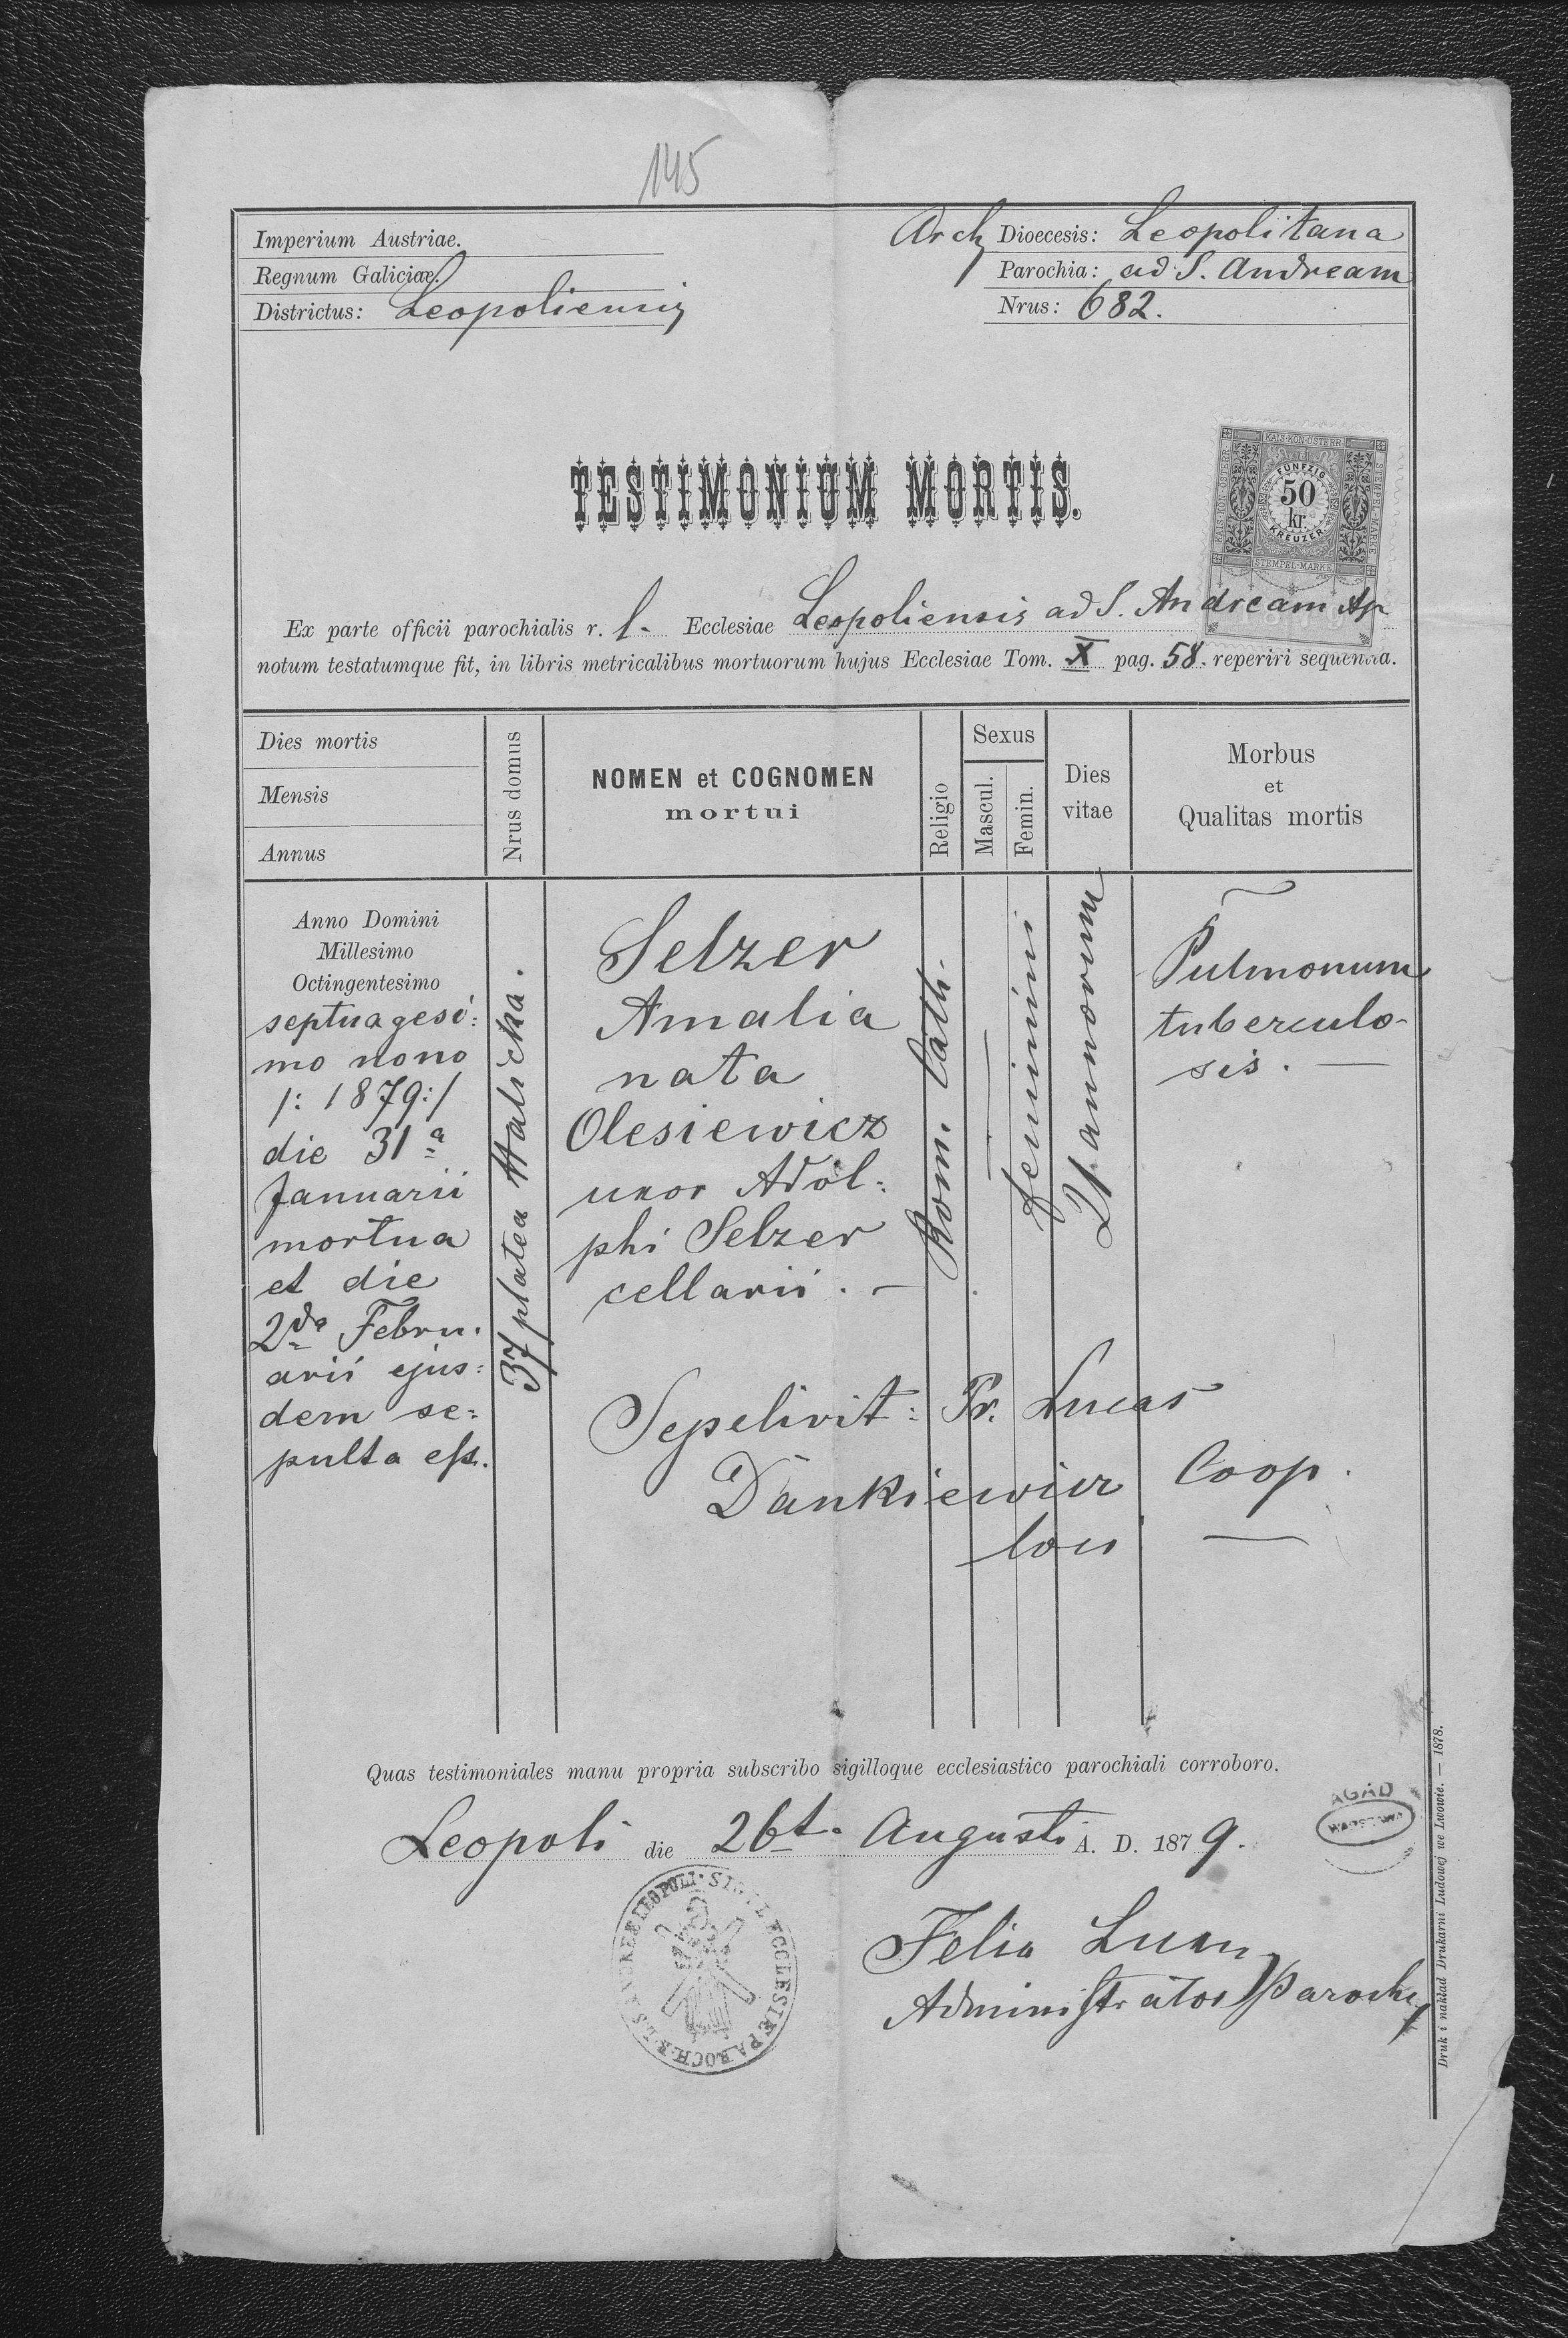 145
Imperium Austriae.
Regnum Galiciae.
Districtus: Leopoliensis
Arch Dioecesis: Leopolitana
Parochia: ad S. Andream
Nrus: 682.
KAIS. KÖN. ÖSTERR.
STEMPEL-MARKE
FÜNFZIG
50
kr.
KREUZER
STEMPEL-MARKE
TESTIMONIUM MORTIS.
Ex parte officii parochialis r. l. Ecclesiae Leopoliensis ad S. Andream Ap
notum testatumque fit, in libris metricalibus mortuorum hujus Ecclesiae Tom. X pag. 58. reperiri sequentia.
Dies mortis
Mensis
Annus
Nrus domus
NOMEN et COGNOMEN
mortui
Religio
Sexus
Mascul.
Femin.
Dies
vitae
Morbus
et
Qualitas mortis
Anno Domini
Millesimo
Octingentesimo
septuagesi:
mo nono
/: 1879:/
die 31a
Januarii
mortua
et die
2da Febru.
arii ejus:
dem se:
pulta est.
37 platea Halicka.
Selzer
Amalia
nata
Olesiewicz
uxor Adol:
phi Selzer
cellarii. —
Rom. Cath.
feminini
21 annorum
Pulmonum
tuberculo-
sis. —
Sepelivit: Pr. Lucas
Dankiewicz Coop.
loci —
Quas testimoniales manu propria subscribo sigilloque ecclesiastico parochiali corroboro.
Leopoli die 26t. Augusti A. D. 1879.
AGAD
WARSZAWA
Felix
Administrator Parochiæ
Druk i nakład Drukarni Ludowej we Lwowie. — 1878.